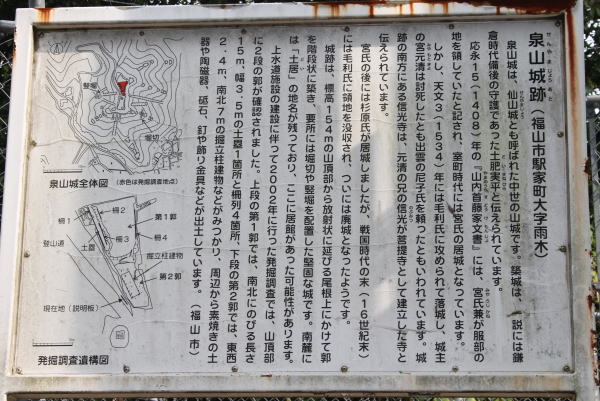 泉山城跡（福山市駅家町大字雨木）
せんやまじょうあと
泉山城は、仙山城とも呼ばれた中世の山城です。築城は、一説には鎌
倉時代備後の守護であった土肥実平と伝えられています。
応永15（1408）年の『山内首藤家文書』には、宮氏兼が服部の
地を領していたと記され、室町時代には宮氏の居城となっています。
しかし、天文3（1534）年には毛利氏に攻められて落城し、城主
の宮元清は討死したとも出雲の尼子氏を頼ったともいわれています。城
跡の南方にある信光寺は、元清の兄の信光が菩提寺として建立した寺と
伝えられています。
宮氏の後には杉原氏が居城しましたが、戦国時代の末（16世紀末）
には毛利氏に領地を没収され、ついには廃城となったようです。
城跡は、標高154mの山頂部から放射状に延びる尾根上にかけて郭
を階段状に築き、要所には堀切や竪堀を配置した堅固な城です。南麓に
は「土居」の地名が残っており、ここに居館があった可能性があります。
上水道施設の建設に伴って2002年に行った発掘調査では、山頂部
に2段の郭が確認されました。上段の第1郭では、南北にのびる長さ
15m、幅3.5mの土塁1箇所と柵列4箇所、下段の第2郭では、東西
2.4m、南北7mの掘立柱建物などがみつかり、周辺から素焼きの土
器や陶磁器、砥石、釘や飾り金具などが出土しています。（福山市）
竪堀
堀切
泉山城全体図（赤色は発掘調査地点）
柵1
柵2
第1郭
登山道
土塁
柵3
柵4
掘立柱建物
第2郭
現在地（説明板）
発掘調査遺構図